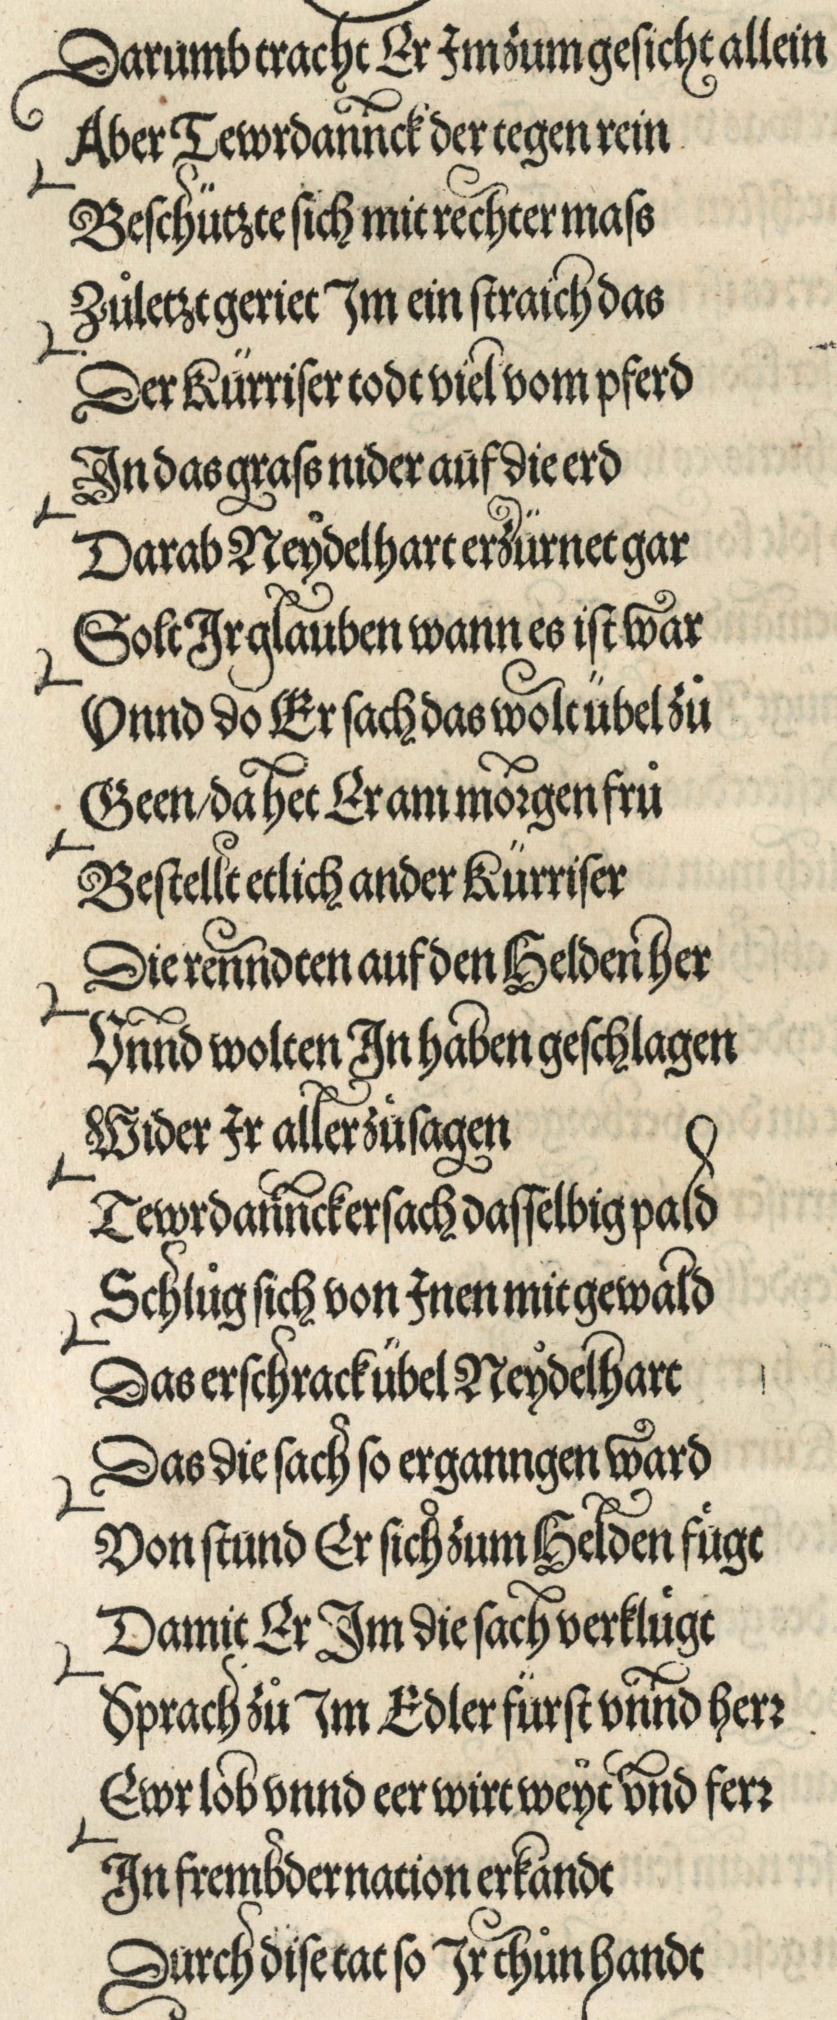 Darumb tracht Er Im zum gesicht allein
Aber Tewrdannck der tegen rein
Beschützte sich mit rechter mass
Zůletzt geriet Im ein straich das
Der Kürriser todt viel vom pferd
In das grass nider auf die erd
Darab Neydelhart erzürnet gar
Solt Ir glauben wann es ist war
Vnnd do Er sach das wolt übel zů
Geen / da het Er am morgen frů
Bestellt etlich ander Kürriser
Die renndten auf den Helden her
Vnnd wolten In haben geschlagen
Wider Ir aller zůsagen
Tewrdannck ersach dasselbig pald
Schlůg sich von Inen mit gewald
Das erschrack übel Neydelhart
Das die sach so erganngen ward
Von stund Er sich zum Helden fůgt
Damit Er Im die sach verklůgt
Sprach zů Im Edler fürst vnnd herr
Ewr lob vnnd eer wirt weyt vnd ferr
In frembder nation erkandt
Durch dise tat so Ir thůn handt